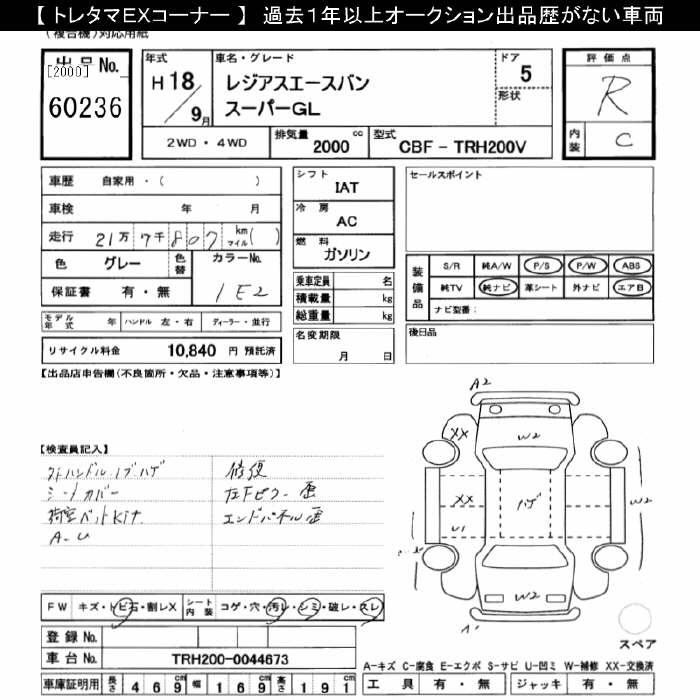 【 トレタマEXコーナー 】 過去1年以上オークション出品歴がない車両
(複合機)対応用紙
出品No.
[2000]
60236
年式
H18/9月
車名・グレード
レジアスエースバン
スーパーGL
ドア
5
形状
評価点
R
内装
C
2WD・4WD
排気量
2000 cc
型式
CBF - TRH200V
車歴 自家用・( )
車検 年 月
走行 21万7千807 km マイル( )
色 グレー 色替 カラーNo.
1E2
保証書 有・無
モデル年式 年 ハンドル 左・右 ディーラー・並行
リサイクル料金 10,840 円 預託済
シフト
IAT
冷房
AC
燃料
ガソリン
乗車定員 名
積載量 kg
総重量 kg
名変期限
月 日
セールスポイント
装備品
S/R 純A/W P/S P/W ABS
純TV 純ナビ 革シート 外ナビ エアB
ナビ型番:
後日品
【出品店申告欄(不良箇所・欠品・注意事項等)】
【検査員記入】
シートカバー
荷室ベットKit
A-U
修復
左Fピラー歪
エンドパネル歪
A2
XX
W2
XX
ハゲ
U1
W2
W2
スペア
FW キズ・トビ石・割レX シート内装 コゲ・穴・汚レ・シミ・破レ・スレ
登録 No.
車台 No. TRH200-0044673
車庫証明用 長さ 469cm 幅 169cm 高さ 191cm
A-キズ C-腐食 E-エクボ S-サビ U-凹ミ W-補修 XX-交換済
工具 有・無 ジャッキ 有・無